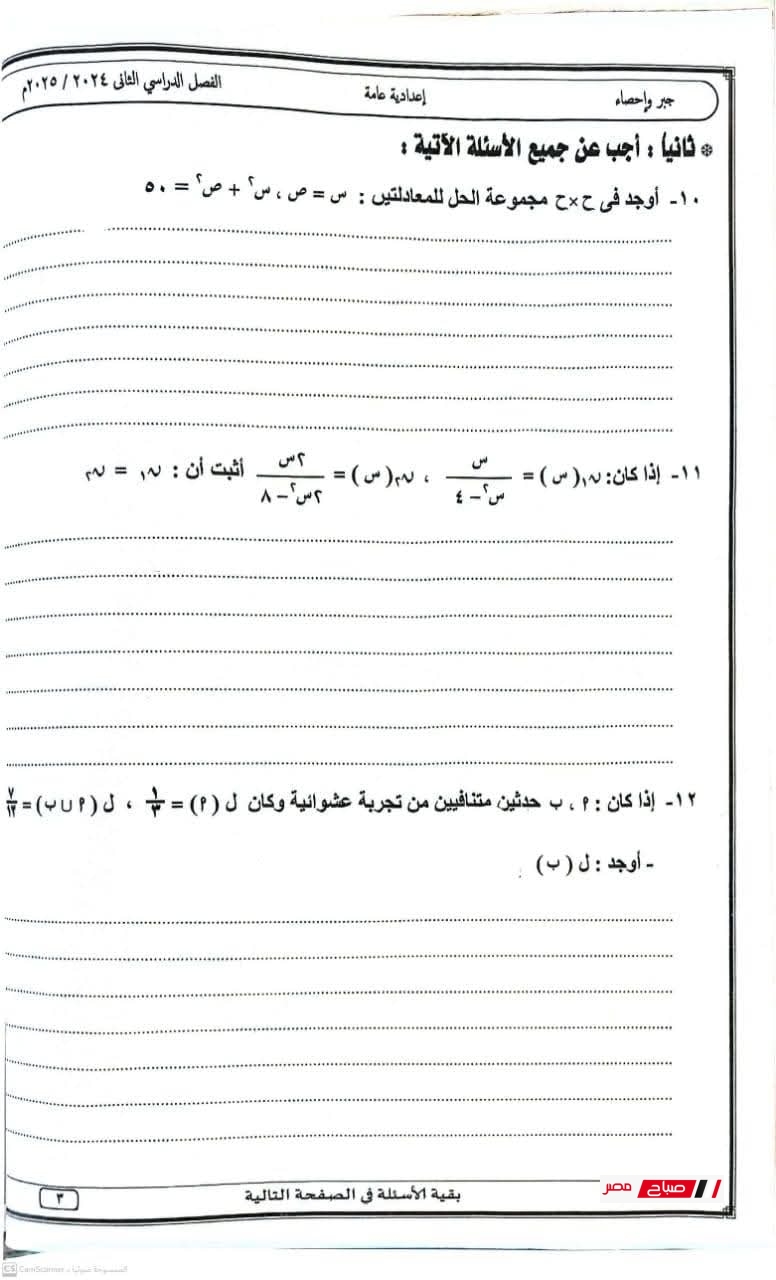 جبر وإحصاء إعدادية عامة الفصل الدراسي الثانى ٢٠٢٤ / ٢٠٢٥م
* ثانياً : أجب عن جميع الأسئلة الآتية :
١٠- أوجد فى ح×ح مجموعة الحل للمعادلتين : س = ص ، س٢ + ص٢ = ٥٠
١١- إذا كان: ن١(س) = س / (س٢ - ٤) ، ن٢(س) = ٢س / (٢س٢ - ٨) أثبت أن : ن١ = ن٢
١٢- إذا كان : م ، ب حدثين متنافيين من تجربة عشوائية وكان ل (م) = ١/٣ ، ل (م ∪ ب) = ٧/١٢
- أوجد : ل (ب)
بقية الأسئلة فى الصفحة التالية
٣
صباح مصر
CS CamScanner الممسوحة ضوئيا بـ